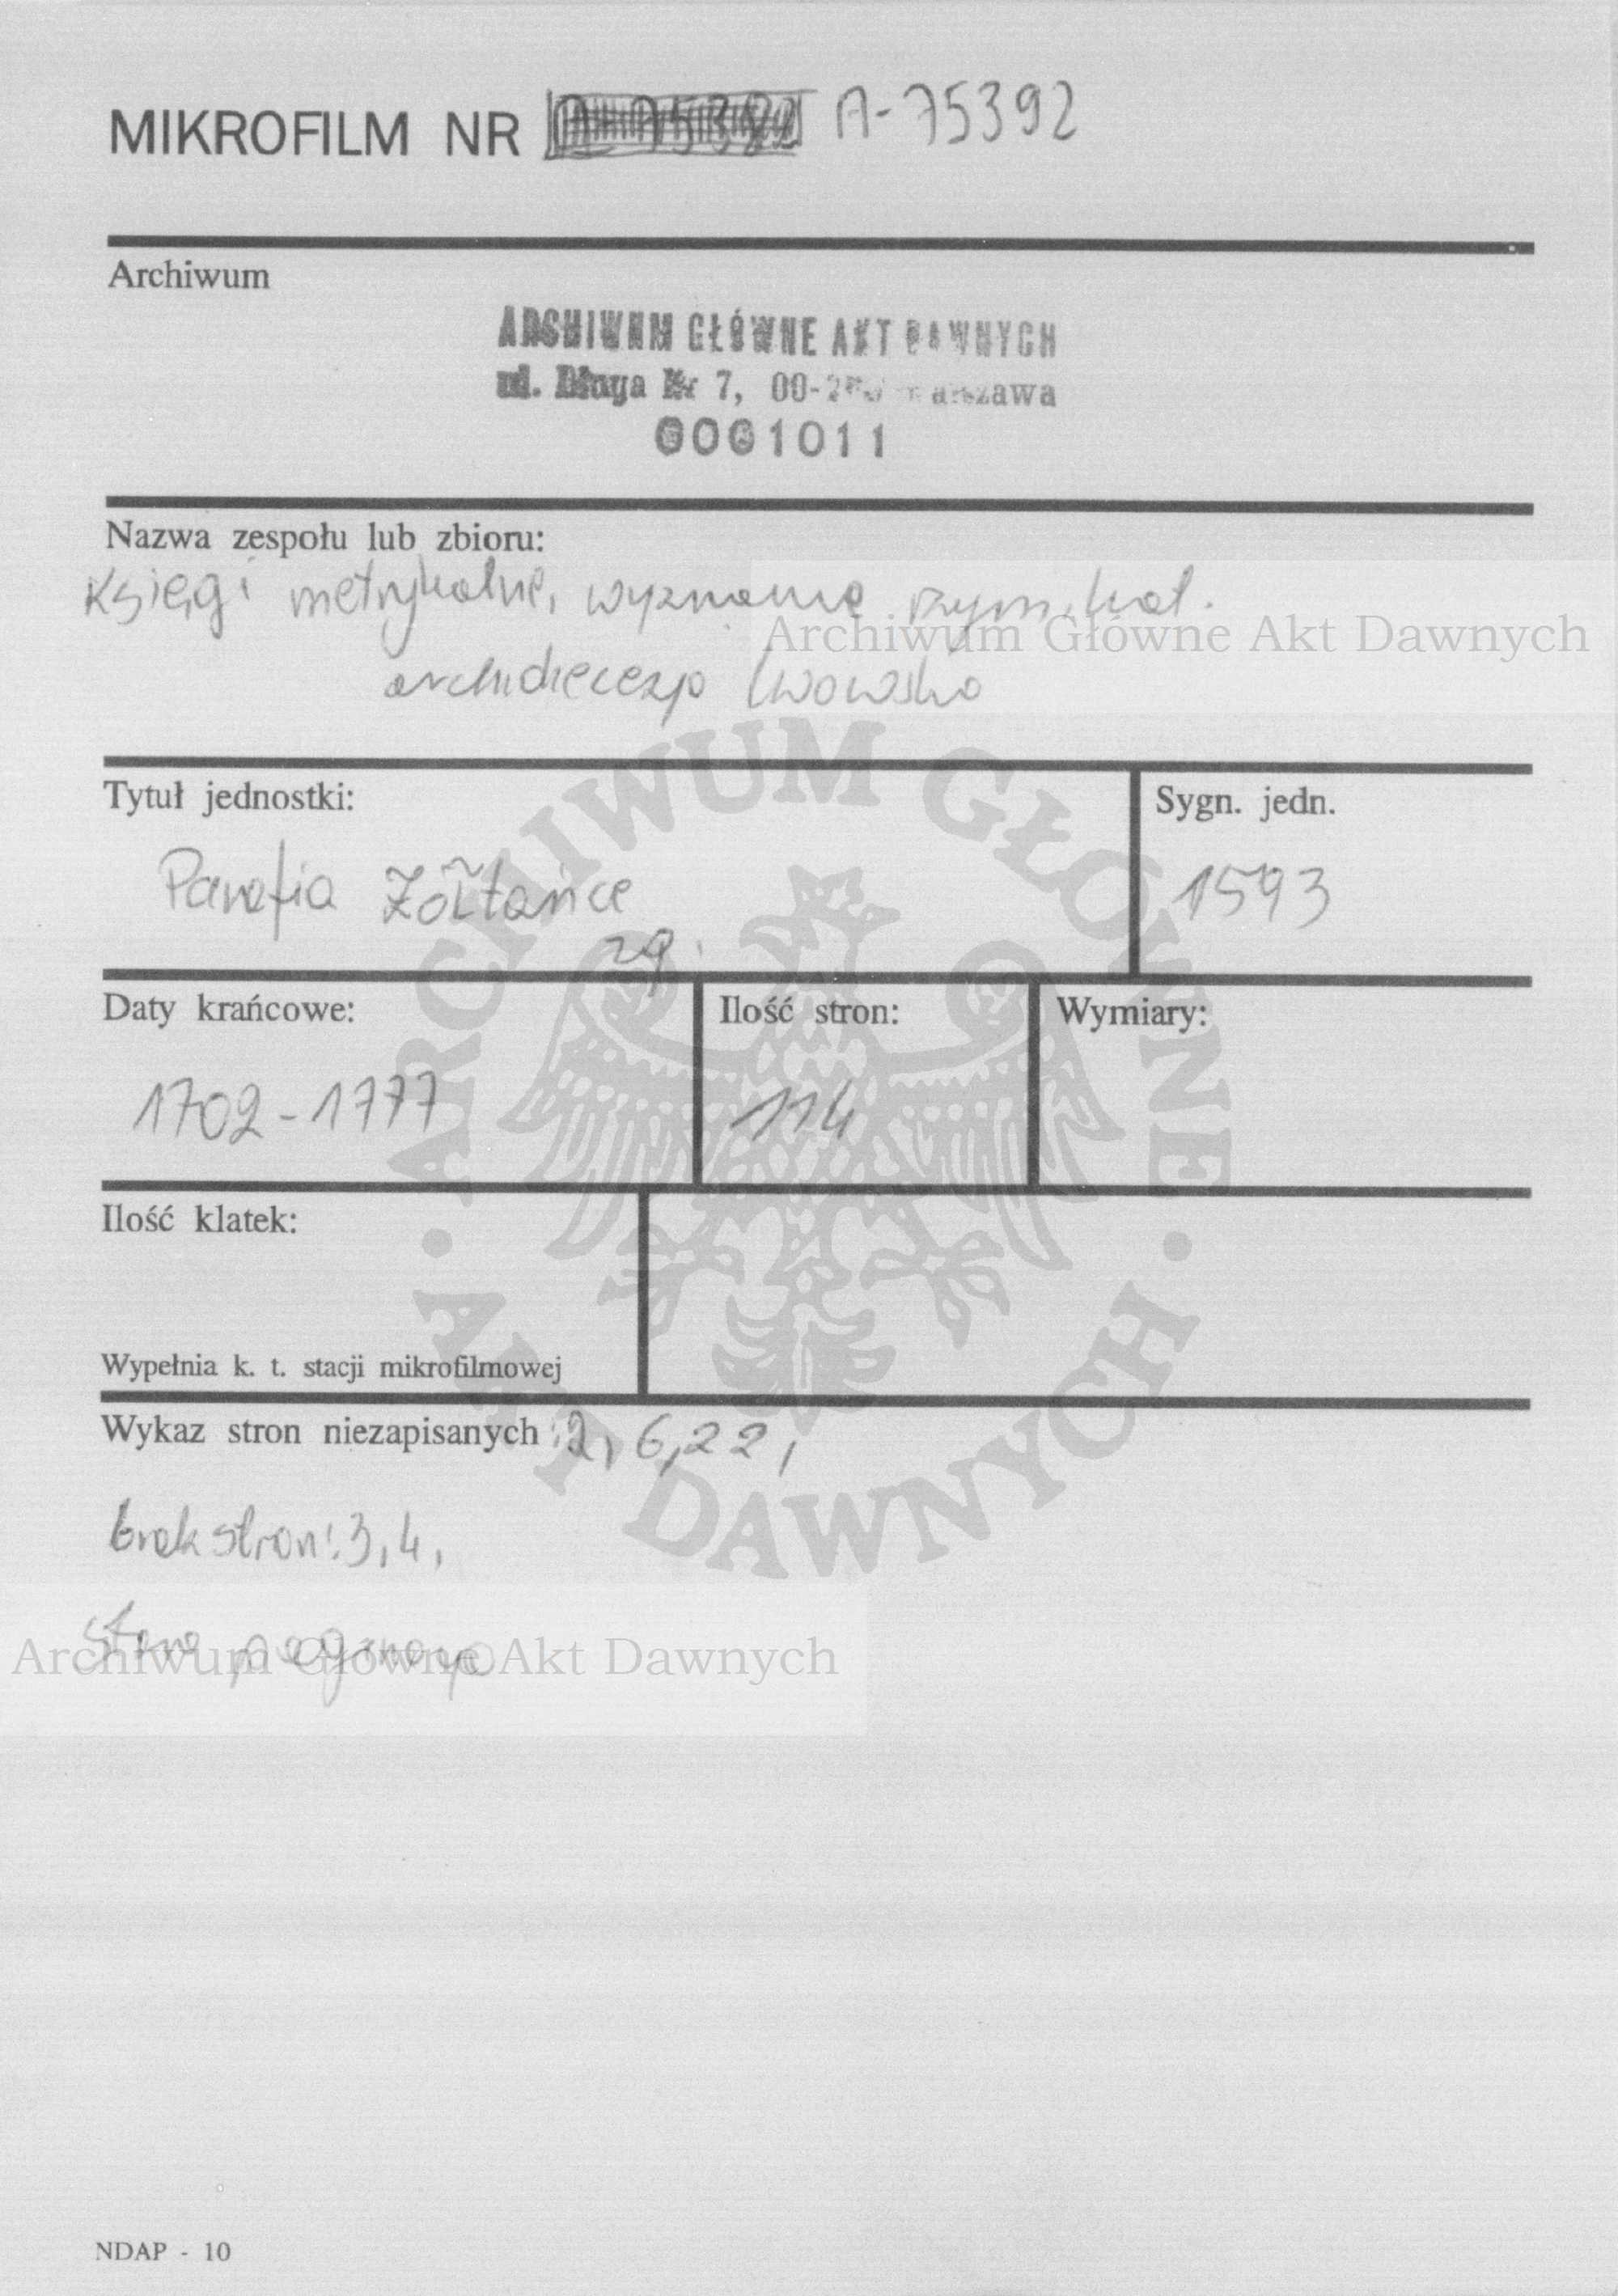 MIKROFILM NR A-75392
Archiwum
ARCHIWUM GŁÓWNE AKT DAWNYCH
ul. Długa Nr 7, 00-263 Warszawa
0001011
Nazwa zespołu lub zbioru:
Księgi metrykalne, wyznania rzym. kat.
Archiwum Główne Akt Dawnych
archidiecezja lwowska
Tytuł jednostki:
Sygn. jedn.
Parafia Żółtańce
1593
zg.
Daty krańcowe:
Ilość stron:
Wymiary:
1702-1777
114
Ilość klatek:
Wypełnia k. t. stacji mikrofilmowej
Wykaz stron niezapisanych: 2, 6, 22,
brak stron: 3, 4,
stara paginacja
Archiwum Główne Akt Dawnych
ARCHIWUM GŁÓWNE · AKT DAWNYCH ·
NDAP - 10